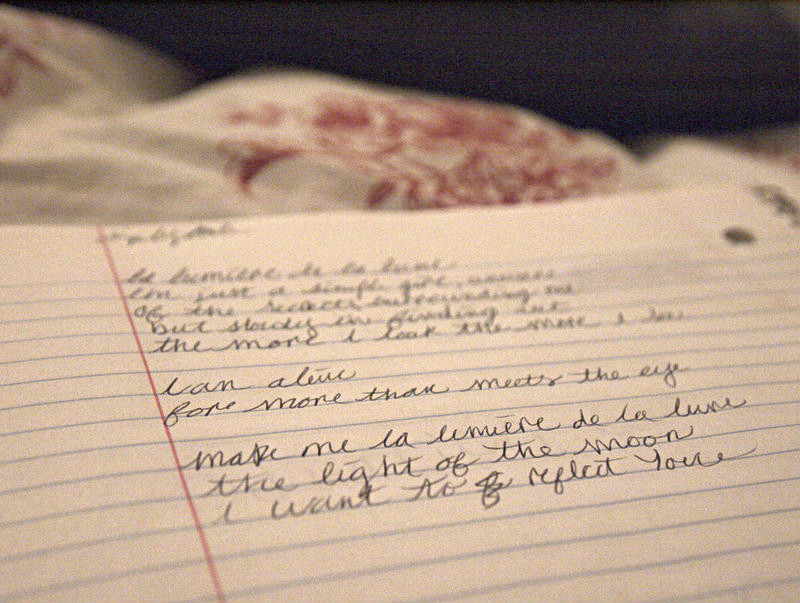 la lumière de la lune
i'm just a simple girl, unaware
of the secrets surrounding me
but slowly i'm finding out
the more i look the more i see
i am alive
for more than meets the eye
make me la lumière de la lune
the light of the moon
i want to reflect you